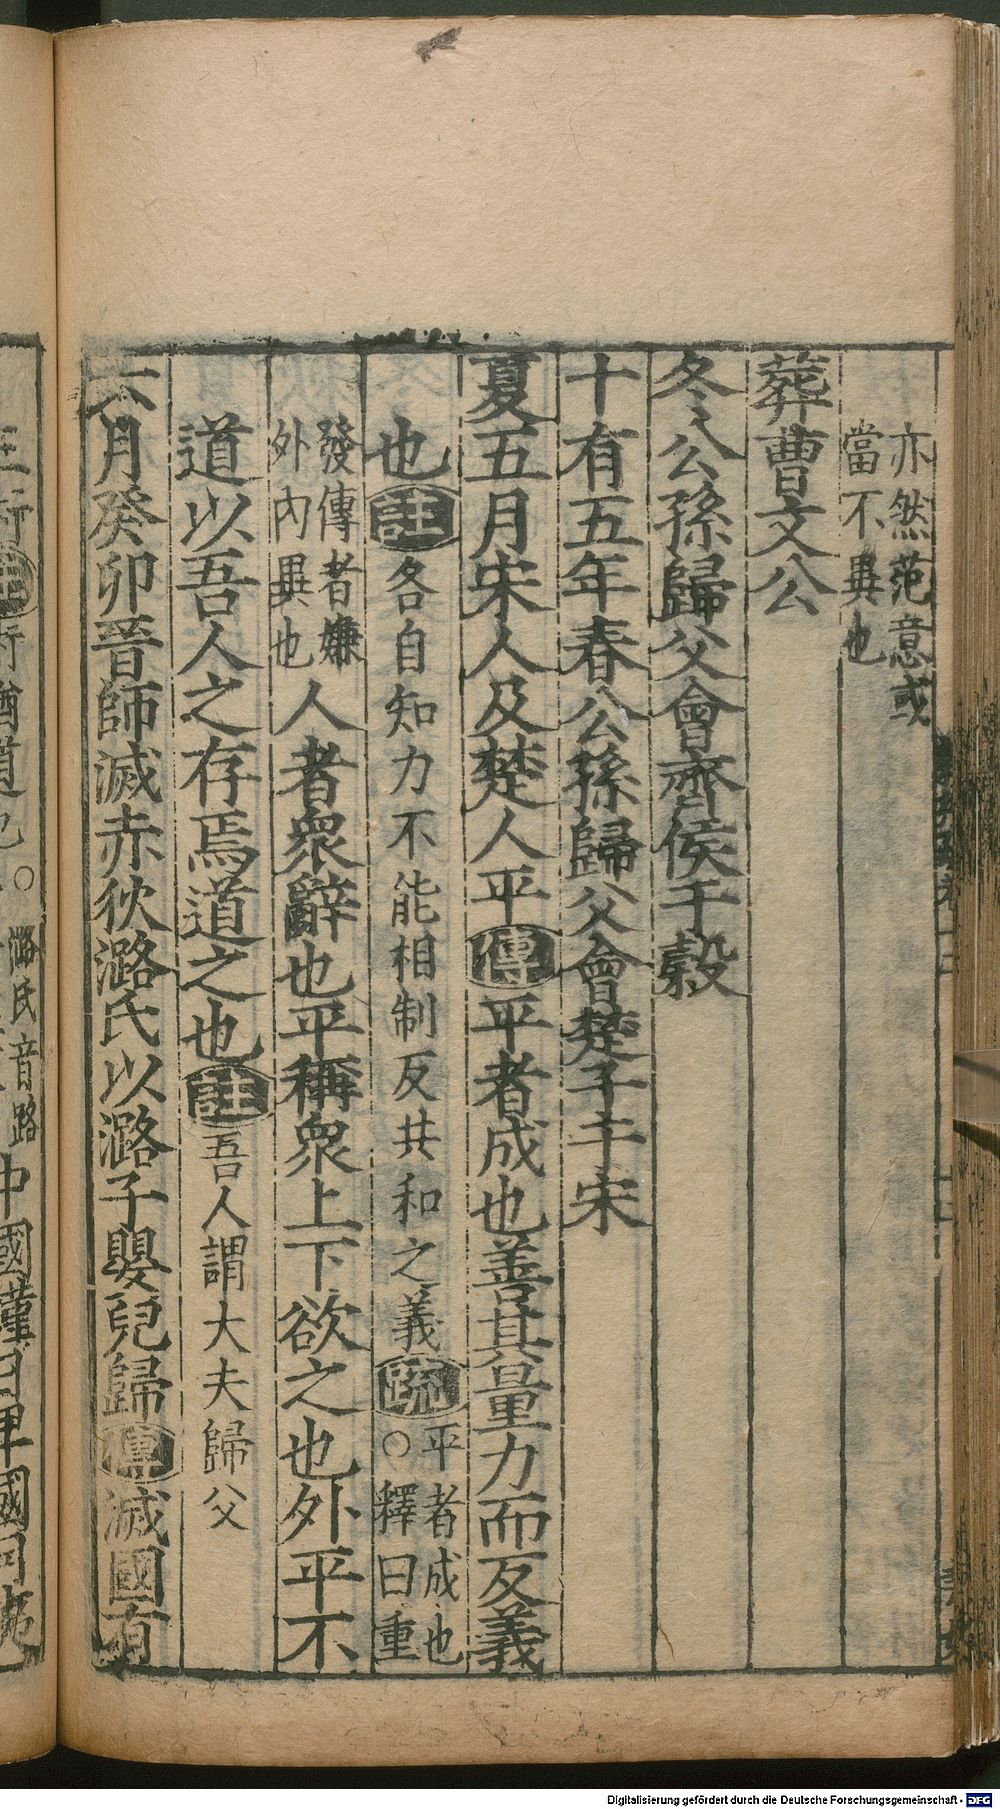 亦然范意或
當不異也
葬曹文公
冬公孫歸父會齊侯于穀
十有五年春公孫歸父會楚子于宋
夏五月宋人及楚人平傳平者成也善其量力而反義
也註各自知力不能相制反共和之義疏平者成也
○釋曰重
發傳者嫌
外內異也人者衆辭也平稱衆上下欲之也外平不
道以吾人之存焉道之也註吾人謂大夫歸父
六月癸卯晉師滅赤狄潞氏以潞子嬰兒歸傳滅國有
三術註術猶道也○潞氏音路
中國謹日卑國月夷
Digitalisierung gefördert durch die Deutsche Forschungsgemeinschaft - DFG